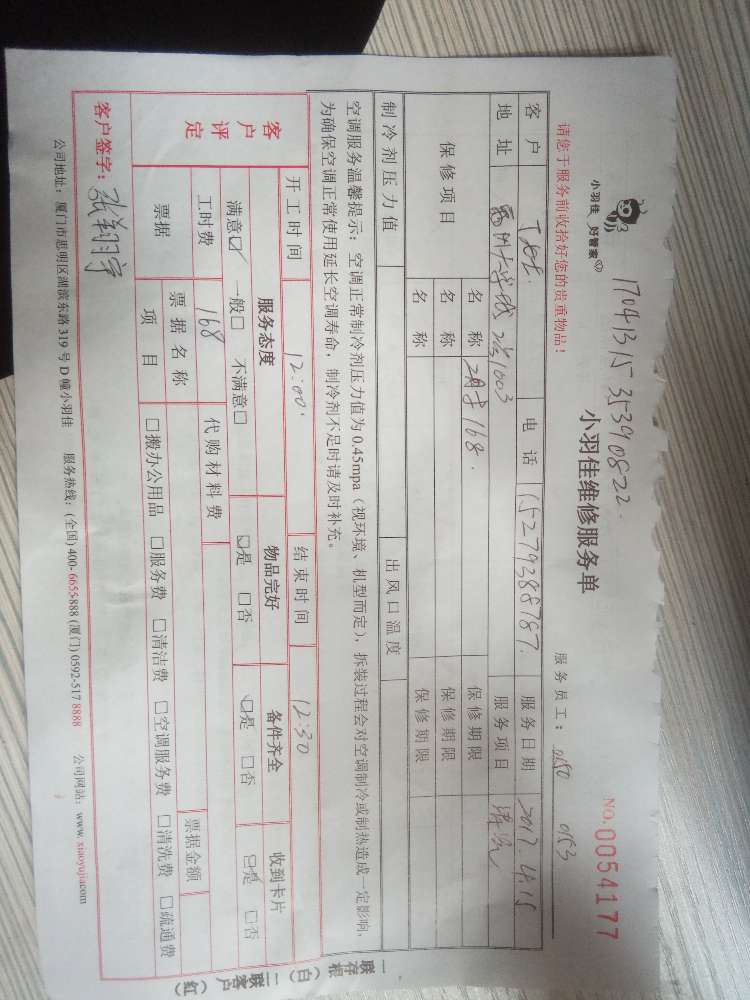 170413153539 0822.
小羽佳 好管家
小羽佳维修服务单
NO.0054177
请您于服务前收拾好您的贵重物品!
服务员工: 0150 0153
客户 电话 15279388787. 服务日期 2017.4.15
地址 2#1003 服务项目 清洗
保修项目 名称 168. 保修期限
名称 保修期限
名称 保修期限
制冷剂压力值 出风口温度
空调服务温馨提示:空调正常制冷剂压力值为0.45mpa(视环境、机型而定),拆装过程会对空调制冷或制热造成一定影响,
为确保空调正常使用延长空调寿命,制冷剂不足时请及时补充。
开工时间 12:00. 结束时间 12:30
客户评定 服务态度 物品完好 备件齐全 收到卡片
满意☑ 一般□ 不满意□ ☑是 □否 ☑是 □否 ☑是 □否
工时费 168 代购材料费
票据 票据名称 票据金额
项目 □搬办公用品 □服务费 □清洁费 □空调服务费 □清洗费 □疏通费
客户签字: 张翔宇
公司地址:厦门市思明区湖滨东路319号D幢小羽佳 服务热线:(全国)400-6655-888 (厦门)0592-517 8888 公司网站:www.xiaoyujia.com
一联存根(白) 二联客户(红)